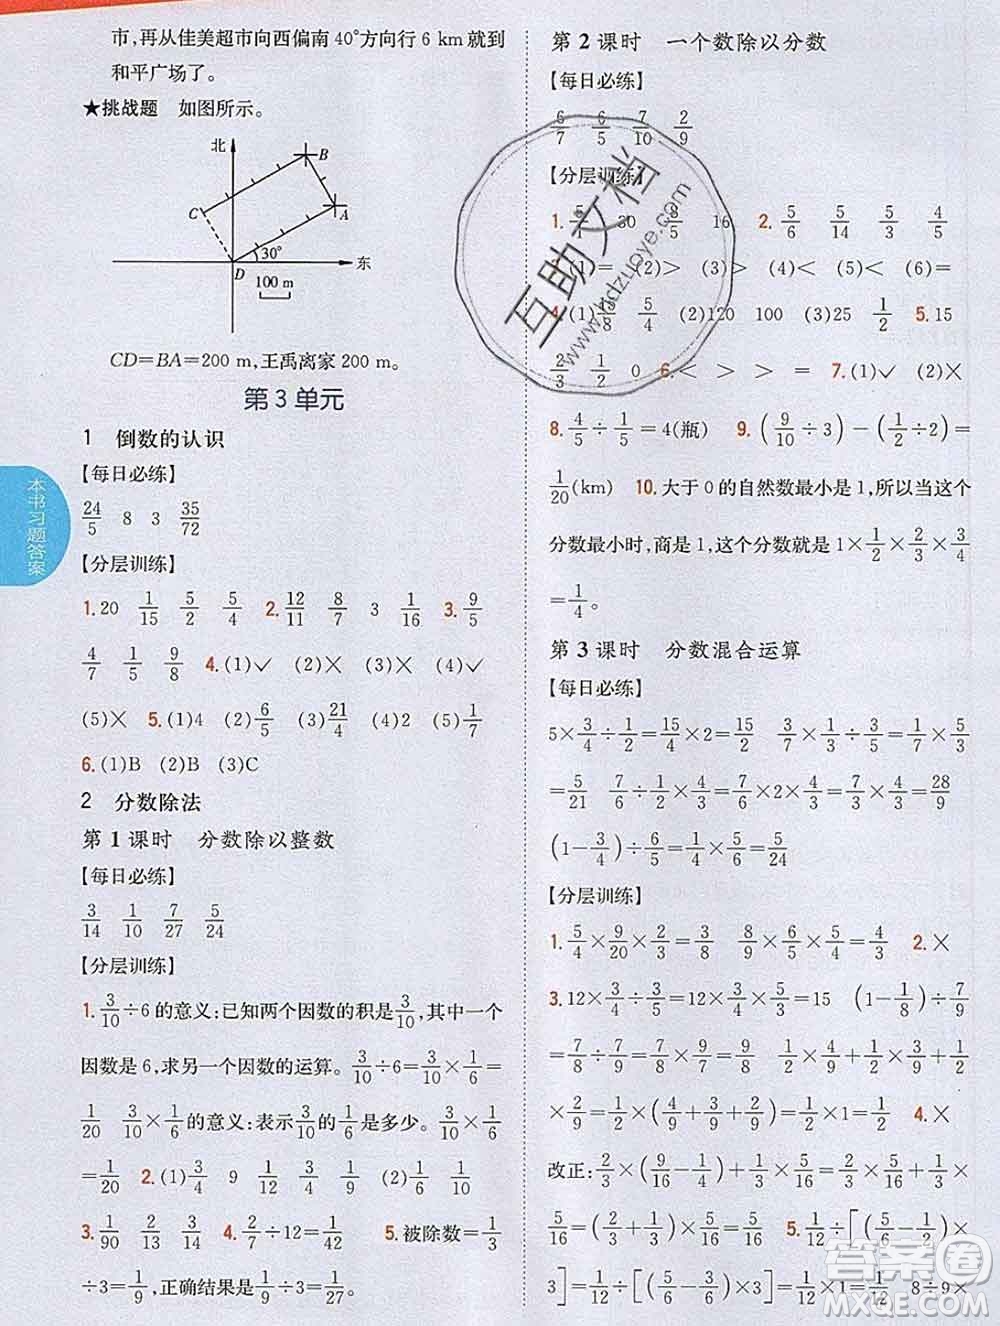 市,再从佳美超市向西偏南 40°方向行 6 km 就到
和平广场了。
★挑战题 如图所示。
北
B
C
A
30°
D
东
100 m
CD=BA=200 m,王禹离家 200 m。
第 3 单元
1 倒数的认识
【每日必练】
24/5 8 3 35/72
【分层训练】
1.20 1/15 5/2 5/4 2.12/11 8/7 3 1/16 3.9/5
4/7 1/5 9/8 4.(1)✓ (2)✓ (3)× (4)✓
(5)× 5.(1)4 (2)6/5 (3)21/4 (4)2 (5)4/9
6.(1)B (2)B (3)C
2 分数除法
第 1 课时 分数除以整数
【每日必练】
3/14 1/10 7/27 5/24
【分层训练】
1.3/10÷6 的意义:已知两个因数的积是3/10,其中一个
因数是 6,求另一个因数的运算。3/10÷6=3/10×1/6=
1/20 3/10×1/6的意义:表示3/10的1/6是多少。3/10×1/6
=1/20 2.(1)3/4 9 (2)3/10 3/10 1/6 1/20
3.3/10 3/20 3/14 4.4/7÷12=1/21 5.被除数=1/3
÷3=1/9,正确结果是1/9÷3=1/27
本书习题答案
第 2 课时 一个数除以分数
【每日必练】
6/7 6/5 7/10 2/9
【分层训练】
1.5/1 30 8/5 16 2.5/6 5/14 5/3 4/5
3.(1)= (2)> (3)> (4)> (5)< (6)=
4.(1)15/8 5/4 (2)120 100 (3)25 1/2 5.15
2/3 1/2 0 6.< > > > 7.(1)✓ (2)×
8.4/5÷1/5=4(瓶) 9.(9/10÷3)-(1/2÷2)=
1/20(km) 10.大于 0 的自然数最小是 1,所以当这个
分数最小时,商是 1,这个分数就是 1×1/2×2/3×3/4
=1/4。
第 3 课时 分数混合运算
【每日必练】
5×3/4÷1/2=15/4×2=15/2 3/7×1/3÷3/5=1/7×5/3
=5/21 7/6÷1/2×4/3=7/6×2×4/3=7/3×4/3=28/9
(1-3/4)÷6/5=1/4×5/6=5/24
【分层训练】
1.5/4×9/20×2/3=3/8 9/8×2/3×5/9×4/5=4/3 2.×
3.12×3/4÷3/5=12×3/4×5/3=15 (1-1/8)÷7/9
=7/8÷7/9=7/8×9/7=9/8 1/2×4/9+1/2×3/9+1/2
×2/9=1/2×(4/9+3/9+2/9)=1/2×1=1/2 4.×
改正:2/3×(9/16-1/4)+1/3×5/16=2/3×5/16+1/3×
5/16=(2/3+1/3)×5/16=5/16 5.1/12÷[(5/6-1/2)×
3]=1/12÷1=1/12 1/12÷[5/6-1/2×3]
互助文档
www.hdzuoye.com
答案圈
MXQE.COM